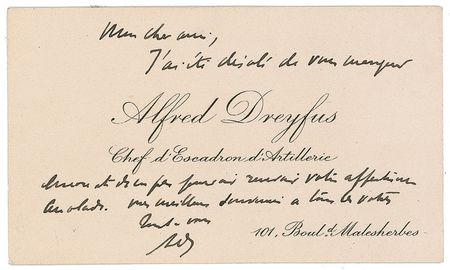 Mon cher ami,
J'ai été désolé de vous manquer
Alfred Dreyfus
Chef d'Escadron d'Artillerie
et de ne pas pouvoir votre affectueuse
vos meilleurs souvenirs à tous les vôtres
Tout à vous
101, Boul.d Malesherbes